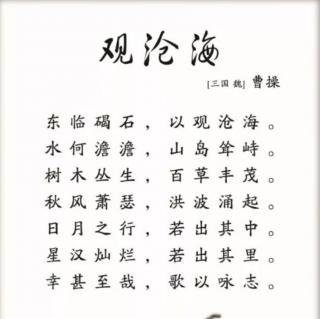 观沧海
[三国 魏] 曹操
东临碣石，以观沧海。
水何澹澹，山岛耸峙。
树木丛生，百草丰茂。
秋风萧瑟，洪波涌起。
日月之行，若出其中。
星汉灿烂，若出其里。
幸甚至哉，歌以咏志。